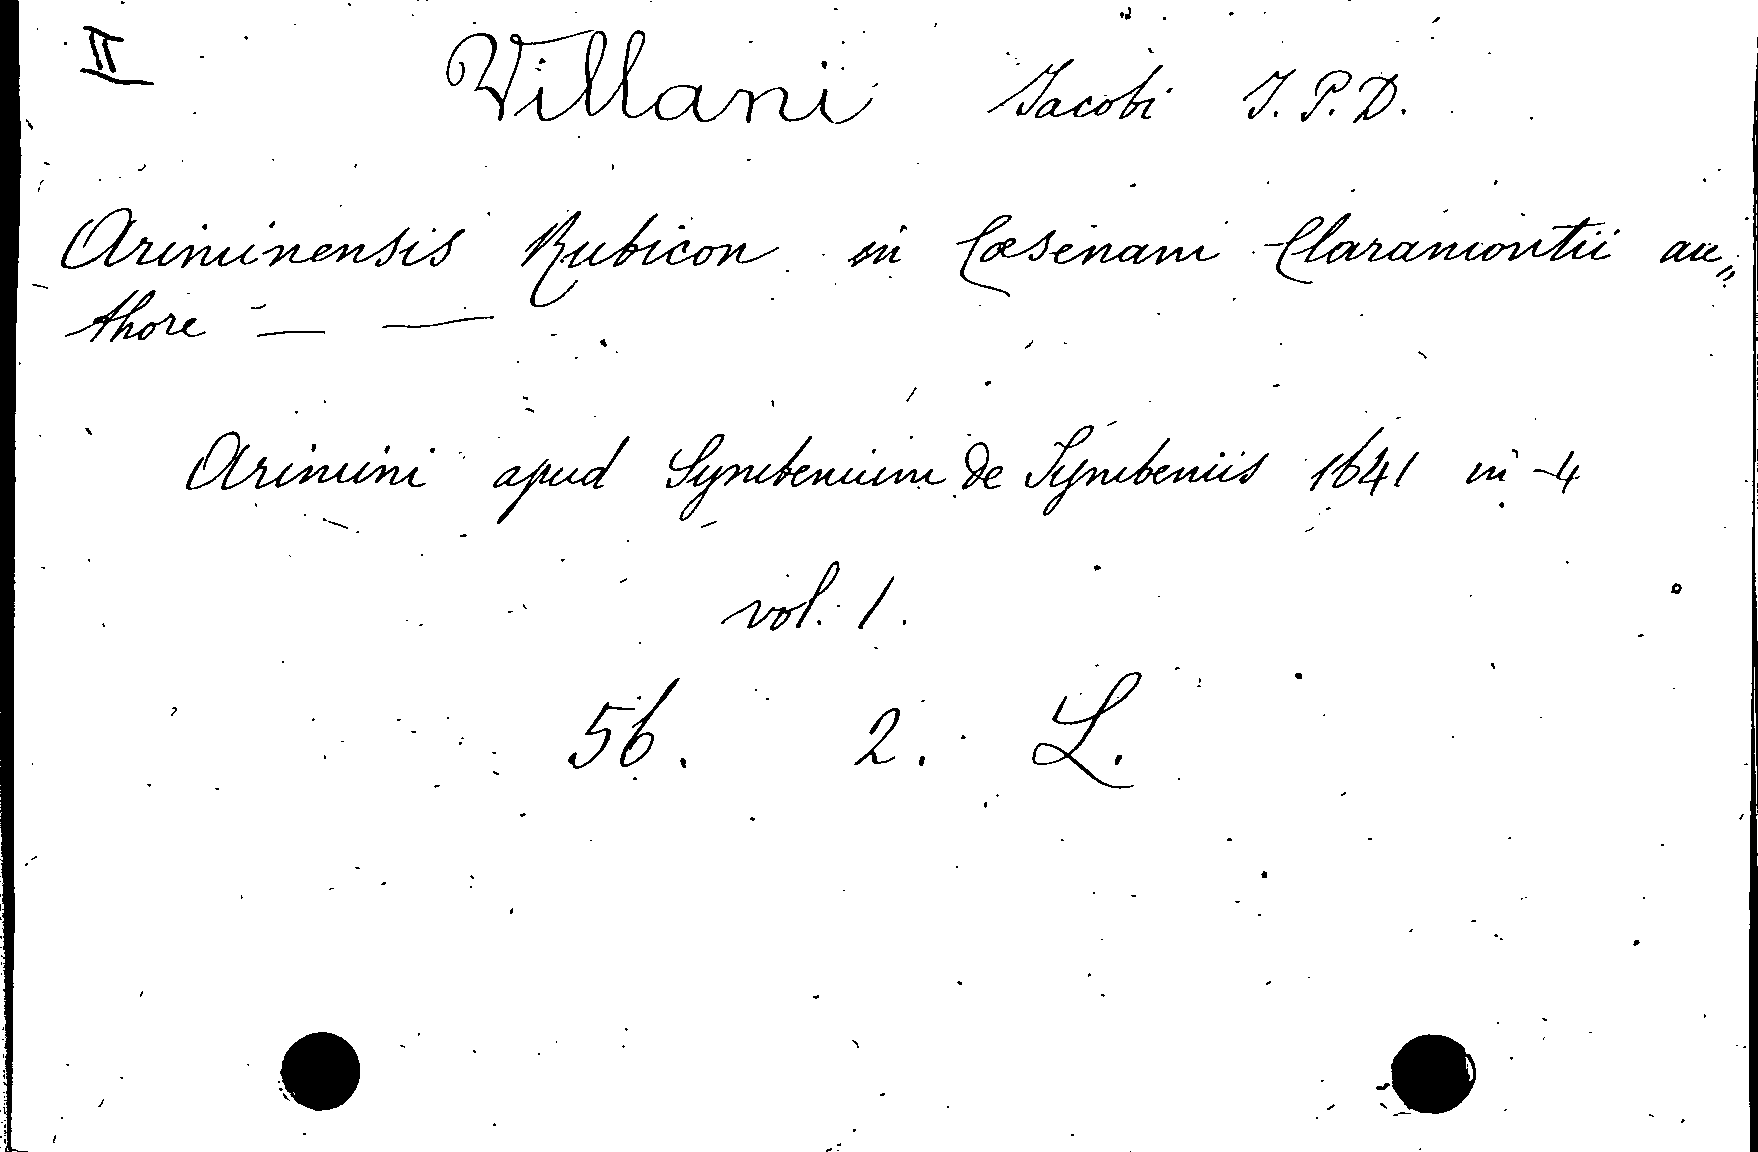 II
Villani Jacobi J. P. D.
Ariminensis Rubicon in Cæsenam Claramontii au„
thore — —
Arimini apud Symbenium de Symbeniis 1641 in-4
vol. 1.
56. 2. L.